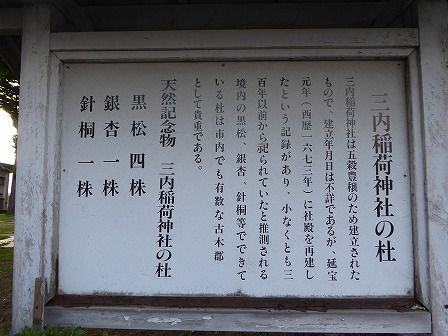 三内稲荷神社の杜
三内稲荷神社は五穀豊穣のため建立された
もので 建立年月日は不詳であるが 延宝
元年（西歴一六七三年）に社殿を再建し
たという記録があり、小なくとも三
百年以前から祀られていたと推測される
境内の黒松、銀杏、針桐等でできて
いる杜は市内でも有数な古木郡
として貴重である。
天然記念物 三内稲荷神社の杜
黒松 四株
銀杏 一株
針桐 一株